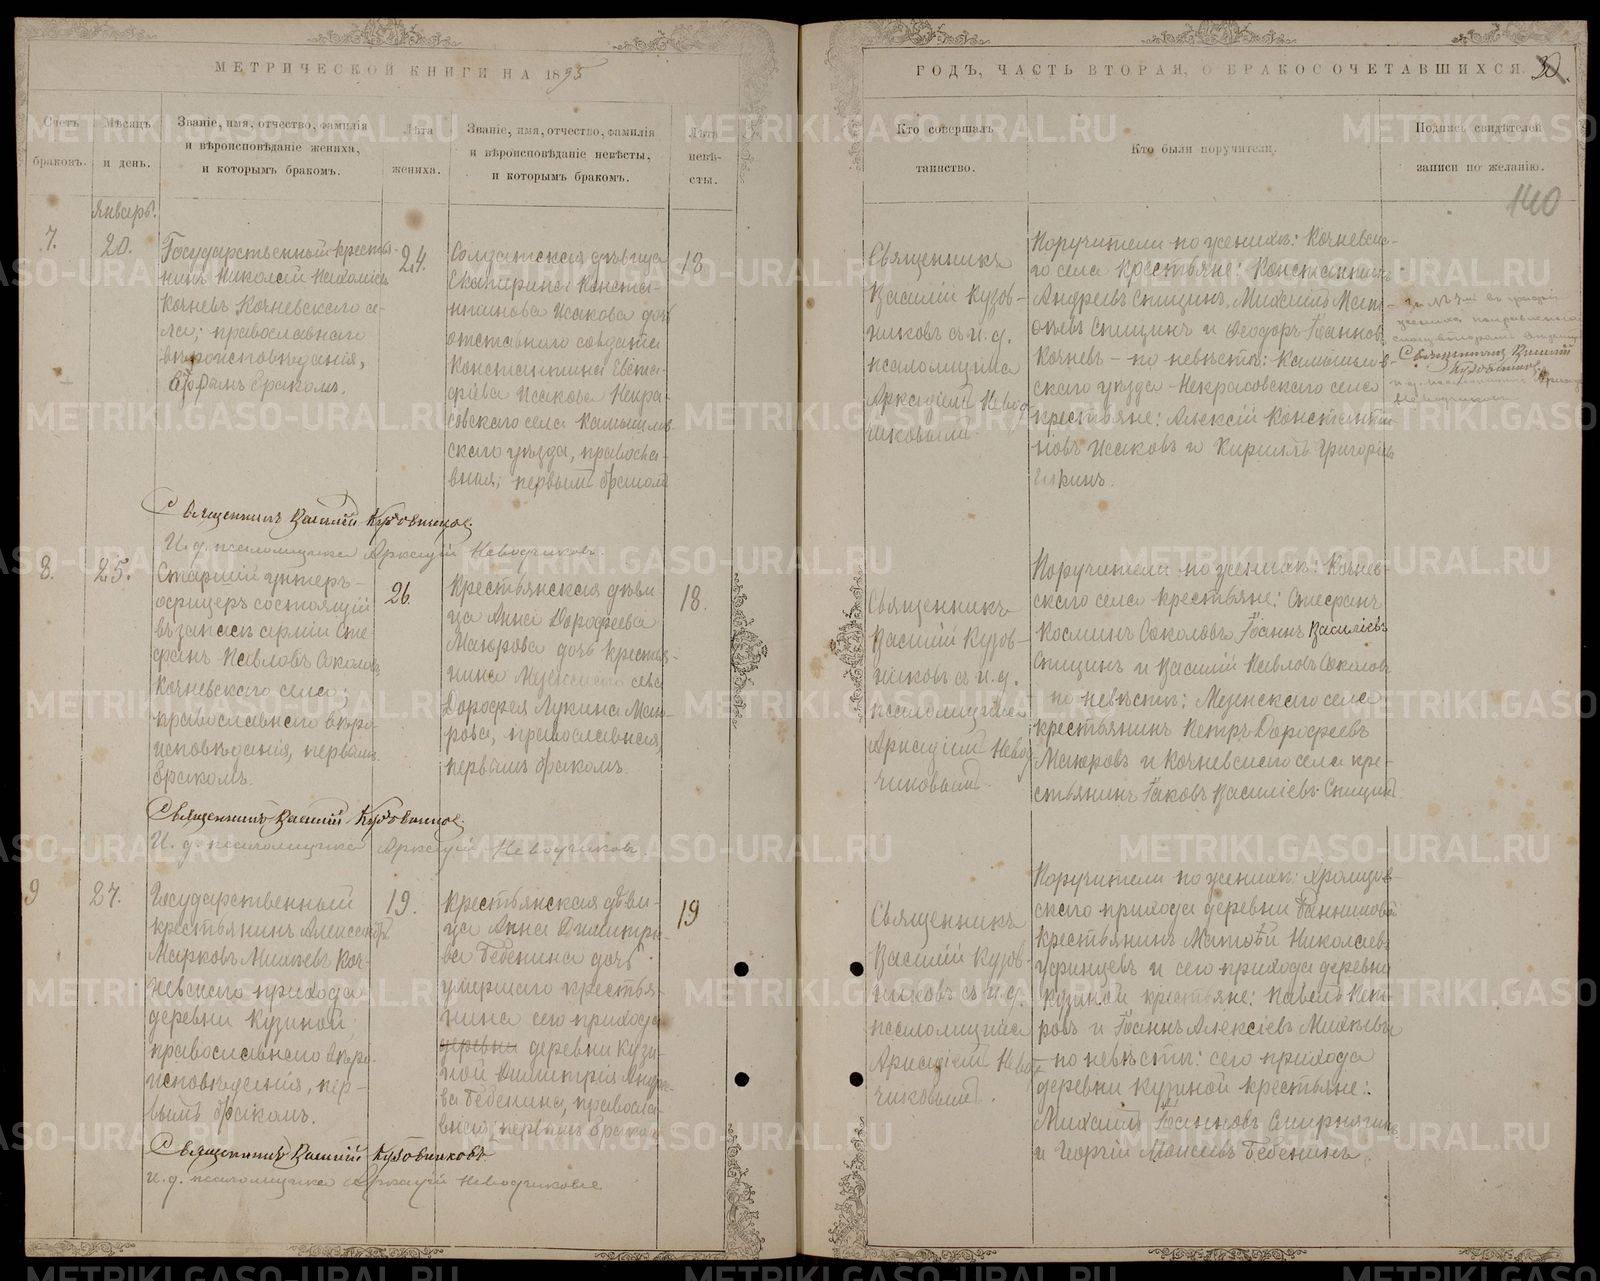 МЕТРИЧЕСКОЙ КНИГИ НА 1895
ГОДЪ, ЧАСТЬ ВТОРАЯ, О БРАКОСОЧЕТАВШИХСЯ.
30.
140
Счетъ
браковъ.
Мѣсяцъ
и день.
Званіе, имя, отчество, фамилія
и вѣроисповѣданіе жениха,
и которымъ бракомъ.
Лѣта
жениха.
Званіе, имя, отчество, фамилія
и вѣроисповѣданіе невѣсты,
и которымъ бракомъ.
Лѣта
невѣ-
сты.
Кто совершалъ
таинство.
Кто были поручители.
Подпись свидѣтелей
записи по желанію.
Январь.
7.
20.
Государственный крестья-
нинъ Николай
Кочневъ Кочневскаго се-
ла; православнаго
вѣроисповѣданія,
бракомъ.
24.
Солдатская дѣвица
Екатерина Констан-
тинова Исакова дочь
отставнаго солдата
Константина
Исакова Некра-
совскаго села Камышлов-
скаго уѣзда, правосла-
вная; первымъ бракомъ
18
Священникъ
Василій Кузов-
никовъ съ и. д.
псаломщика
Аркадіемъ Невод-
чиковымъ.
Поручители по женихѣ: Кочневска-
го села крестьяне: Константинъ
Андреевъ Спицинъ, Михаилъ
Спицинъ и Ѳеодоръ Іоанновъ
Кочневъ – по невѣстѣ: Камышлов-
скаго уѣзда Некрасовскаго села
крестьяне: Алексій Константи-
новъ Исаковъ и Кириллъ Григорьевъ
Священникъ Василій
Кузовниковъ
Священникъ Василій Кузовниковъ.
И. д. псаломщика Аркадій Неводчиковъ.
8.
25.
Старшій унтеръ-
офицеръ состоящій
въ запасѣ арміи Сте-
фанъ Павловъ Соколовъ
Кочневскаго села;
православнаго вѣро-
исповѣданія, первымъ
бракомъ.
26.
Крестьянская дѣви-
ца Анна Дорофеева
Маюрова дочь крестья-
нина села
Дорофея Лукина Маю-
рова, православная,
первымъ бракомъ.
18.
Священникъ
Василій Кузов-
никовъ съ и. д.
псаломщика
Аркадіемъ Невод-
чиковымъ.
Поручители по женихѣ: Кочнев-
скаго села крестьяне: Стефанъ
Косминъ Соколовъ, Іоаннъ Василіевъ
Спицинъ и Василій Павловъ Соколовъ
по невѣстѣ: села
крестьянинъ Петръ Дорофеевъ
Маюровъ и Кочневскаго села кре-
стьянинъ Іаковъ Василіевъ Спицинъ.
Священникъ Василій Кузовниковъ.
И. д. псаломщика Аркадій Неводчиковъ
9
27.
Государственный
крестьянинъ Александръ
Марковъ Михѣевъ Коч-
невскаго прихода
деревни Кузиной,
православнаго вѣро-
исповѣданія, пер-
вымъ бракомъ.
19.
Крестьянская дѣви-
ца Анна Димитрі-
ева Бебенина дочь
умершаго крестья-
нина сего прихода
деревни деревни Кузи-
ной Димитрія Андре-
ева Бебенина, правосла-
вная; первымъ бракомъ
19
Священникъ
Василій Кузов-
никовъ съ и. д.
псаломщика
Аркадіемъ Невод-
чиковымъ.
Поручители по женихѣ: Храмцов-
скаго прихода деревни Банниковой
крестьянинъ Матѳей Николаевъ
Уфинцевъ и сего прихода деревни
Кузиной крестьяне: Павелъ Пет-
ровъ и Іоаннъ Алексіевъ Михѣевы
– по невѣстѣ: сего прихода
деревни Кузиной крестьяне:
Михаилъ Іоанновъ
и Георгій Моисеевъ Бебенинъ.
Священникъ Василій Кузовниковъ
И. д. псаломщика Аркадій Неводчиковъ
METRIKI.GASO-URAL.RU